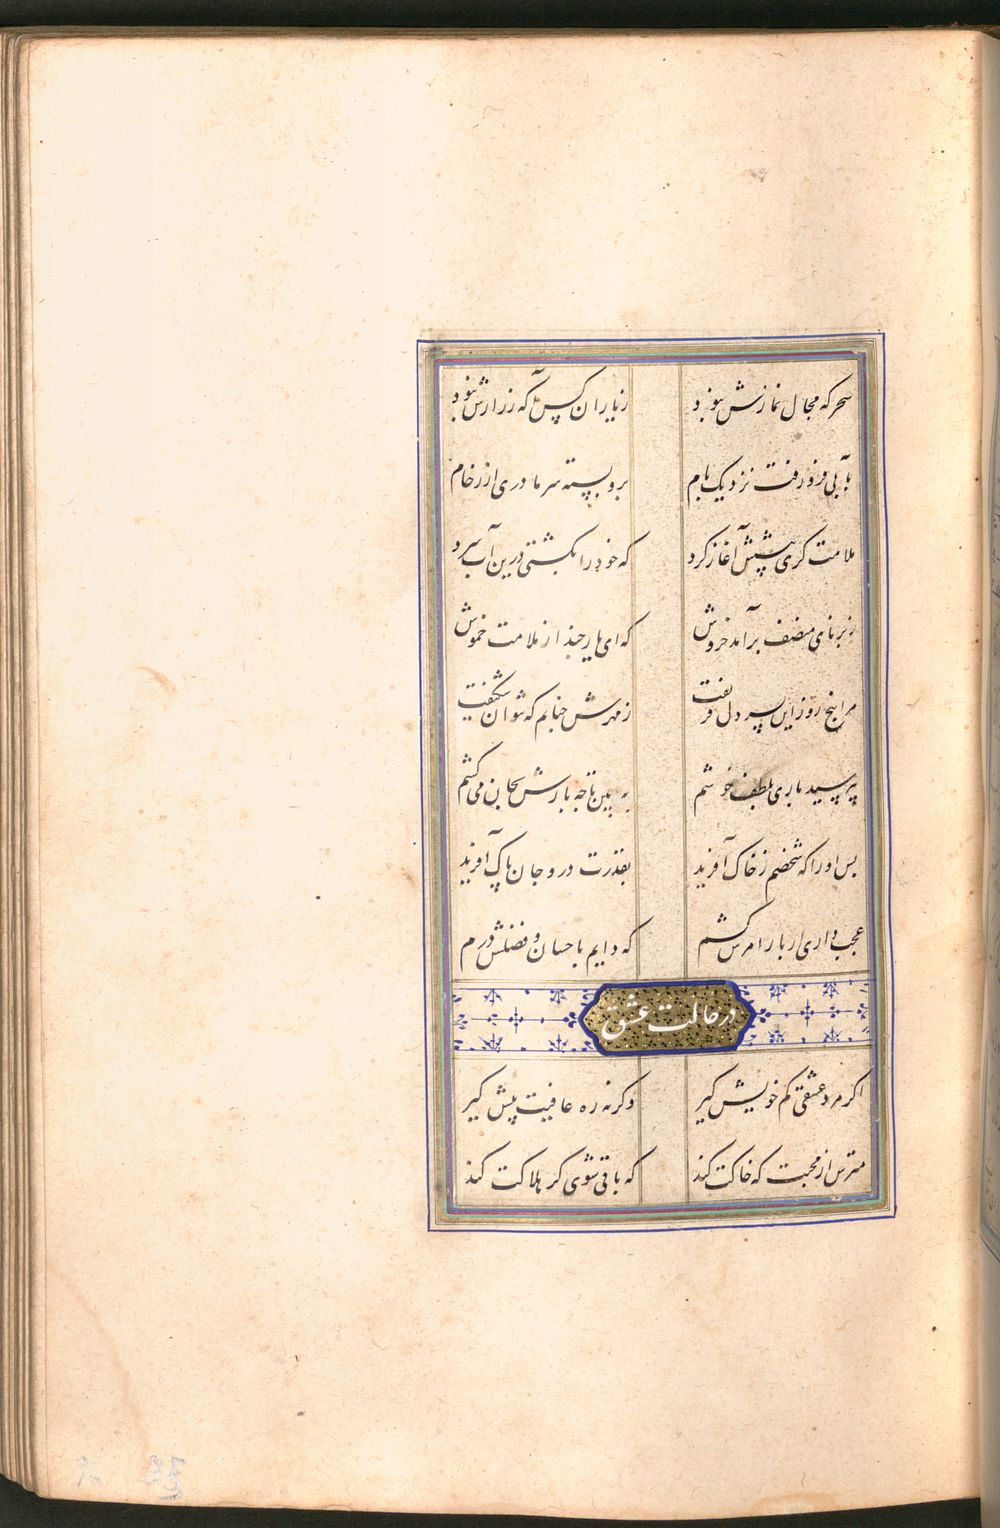 سحرکه مجال نمازش نبود
زیاران کس آکه زرازش نبود
بآبی فرو رفت نزدیک بام
برو بسته سرما دری از رخام
ملامت کری پیشش آغاز کرد
که خود را بکشتی درین آب سرد
زبرنای منصف برآمد خروش
که ای یار چند از ملامت خموش
مرا پنج روز این پسر دل فریفت
ز مهرش چنانم که نتوان شکیفت
نپرسید باری بخلق خوشم
ببین تا چه بارش بجان می کشم
پس اورا که شخصم ز خاک آفرید
بقدرت درو جان پاک آفرید
عجب داری ار بار امرش کشم
که دایم باحسان و فضلش درم
در حالت عشق
اکر مرد عشقی کم خویش کیر
وکرنه ره عافیت پیش کیر
مترس از محبت که خاکت کند
که باقی شوی کر هلاکت کند